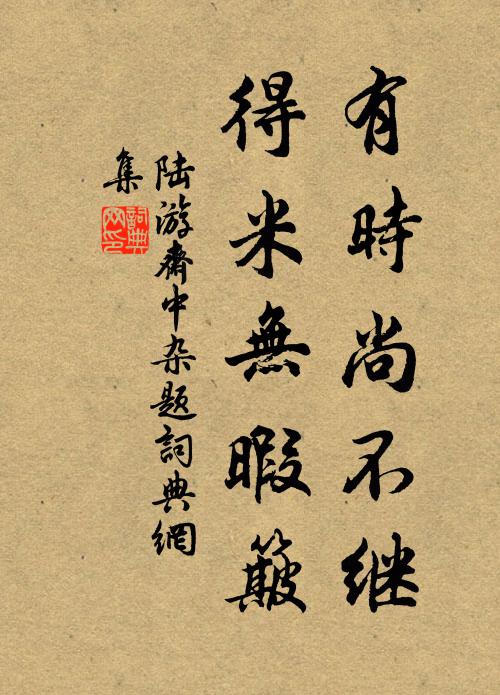 有時尚不继
得米無暇簸
陆游齋中杂题詞典網
集
詞典网印